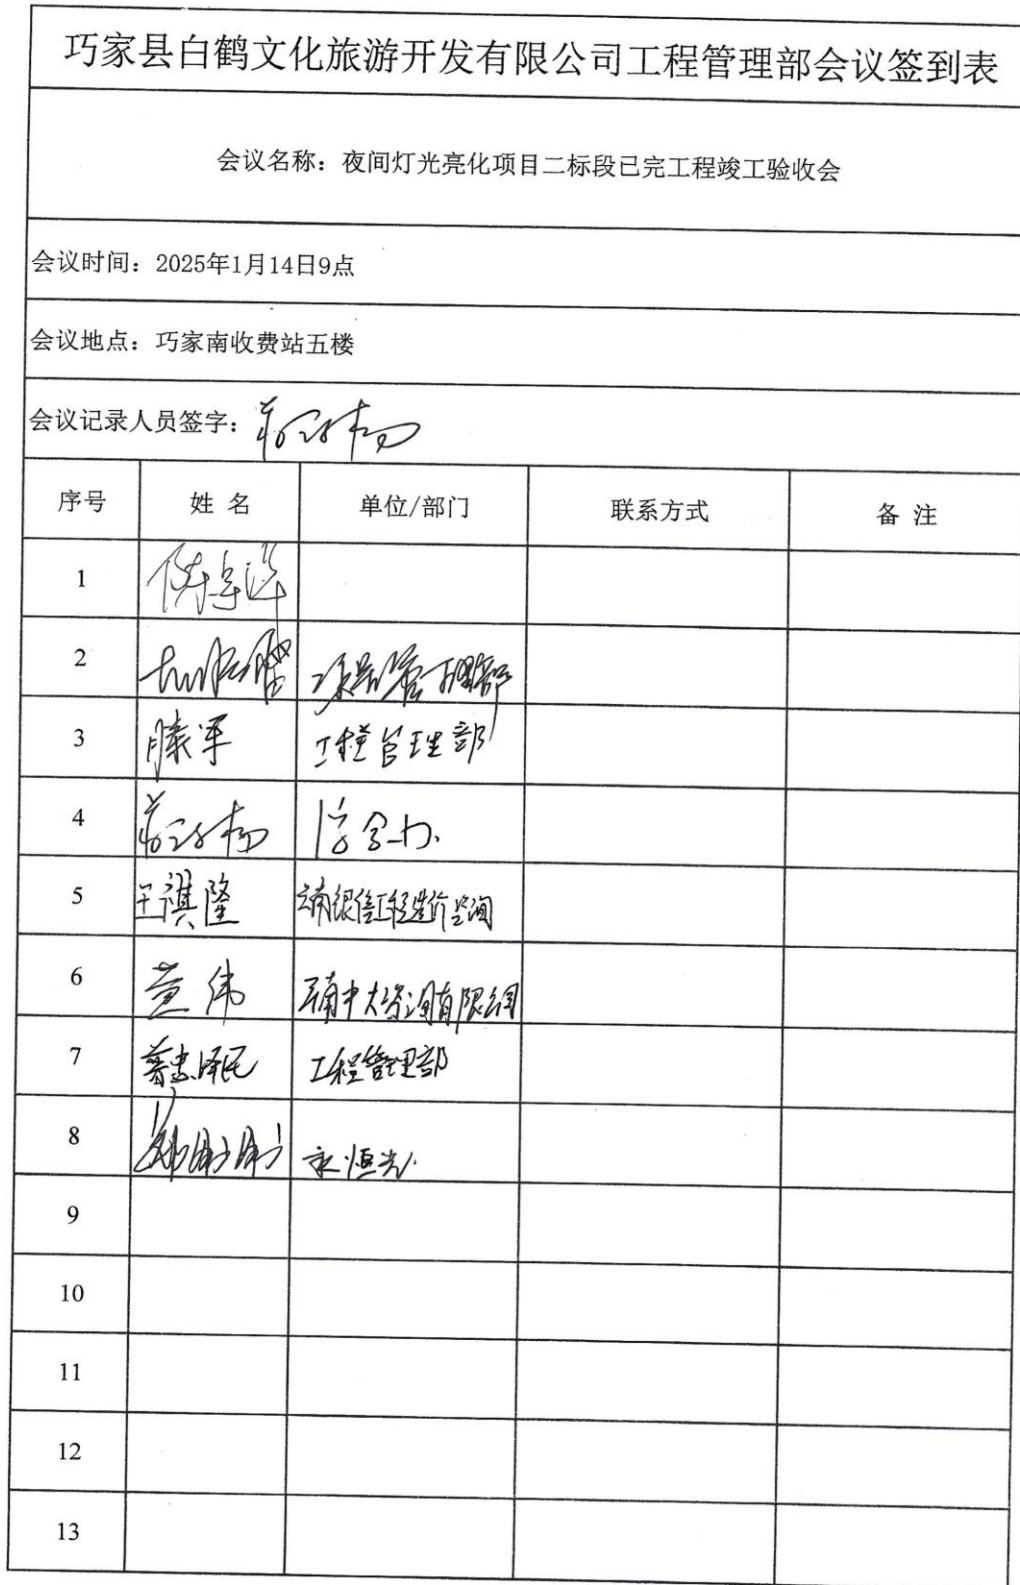 巧家县白鹤文化旅游开发有限公司工程管理部会议签到表
会议名称：夜间灯光亮化项目二标段已完工程竣工验收会
会议时间：2025年1月14日9点
会议地点：巧家南收费站五楼
会议记录人员签字：
序号 姓 名 单位/部门 联系方式 备 注
1
2
3 滕军 工程管理部
4
5 王祺隆 云南银信工程造价咨询
6
7 工程管理部
8 永恒光
9
10
11
12
13